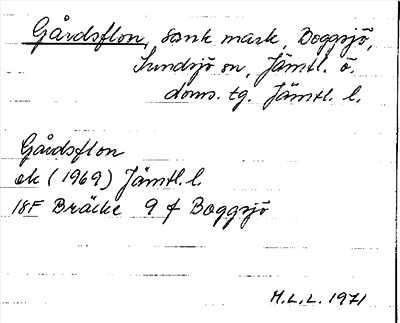 Gårdsflon, sank mark, Boggsjö,
Sundsjö sn, Jämtl. ö.
doms. tg. Jämtl. l.
Gårdsflon
ek (1969) Jämtl. l.
18F Bräcke 9 f Boggsjö
M.L.L. 1971